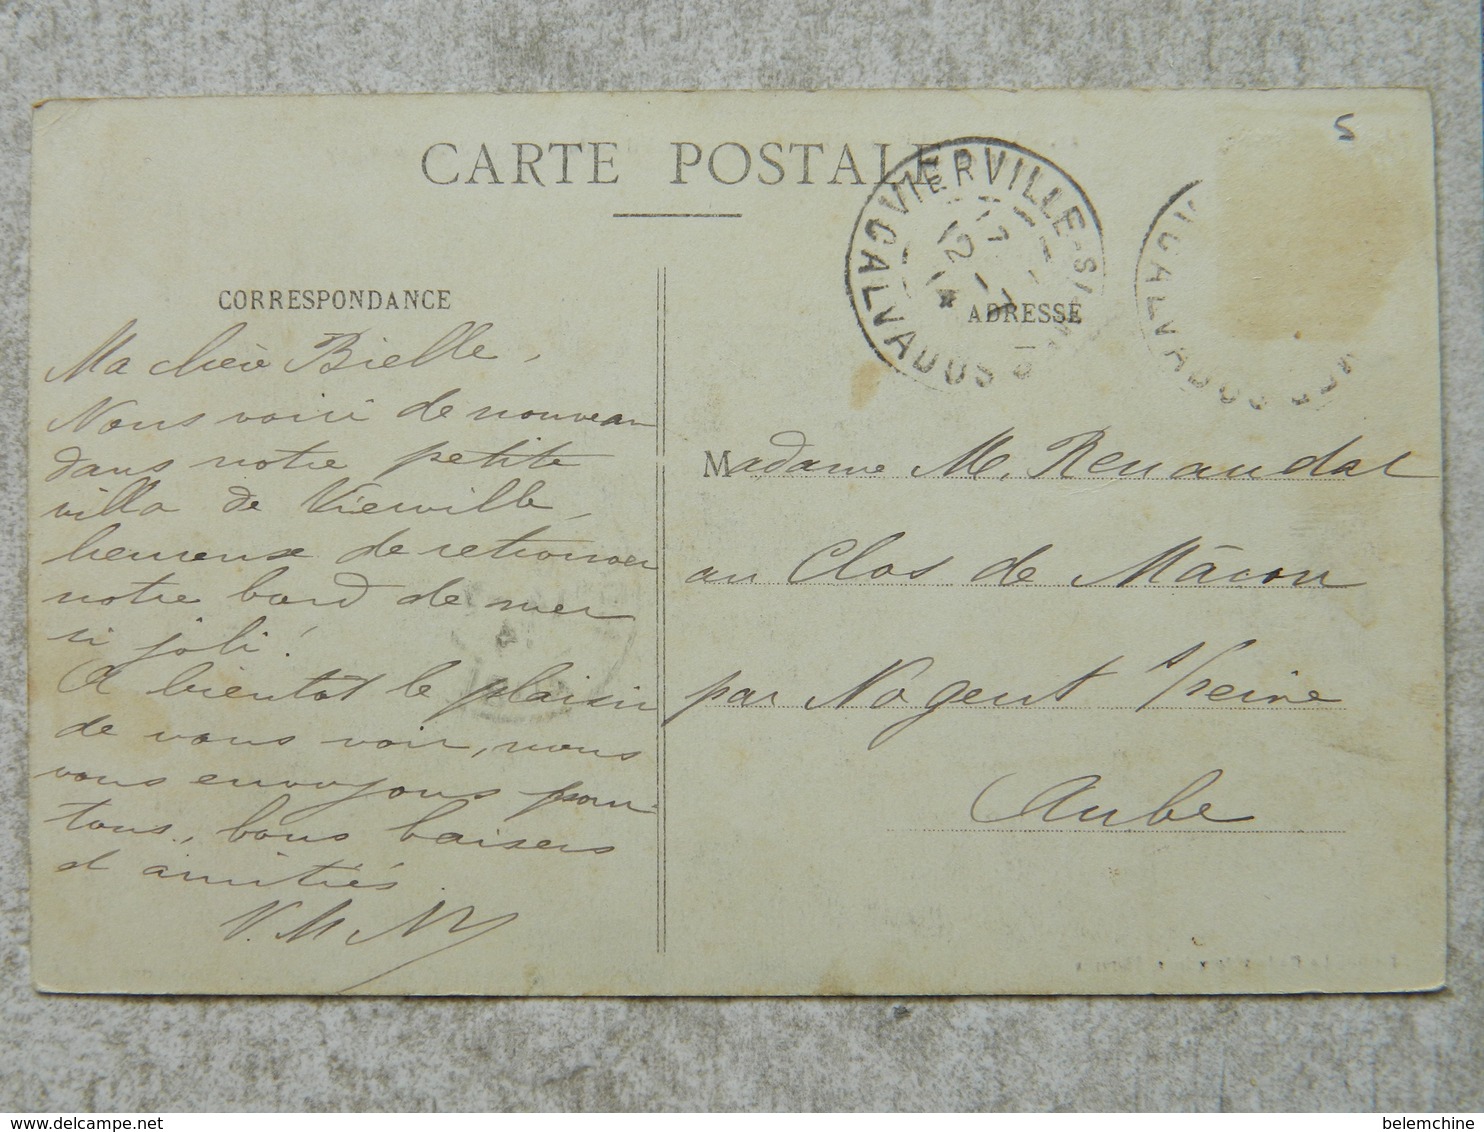 5
CARTE POSTALE
VIERVILLE-S
17
12 - 7
14
CALVADOS
CALVADOS
CORRESPONDANCE
ADRESSE
Ma chère Bielle,
Nous voici de nouveau
dans notre petite
villa de Vierville,
heureux de retrouver
notre bord de mer
si joli!
A bientôt le plaisir
de vous voir, nous
vous envoyons pour
tous, bons baisers
et amitiés.
Madame M. Renaudat
au Clos de Mâcon
par Nogent s/seine
Aube
belemchine